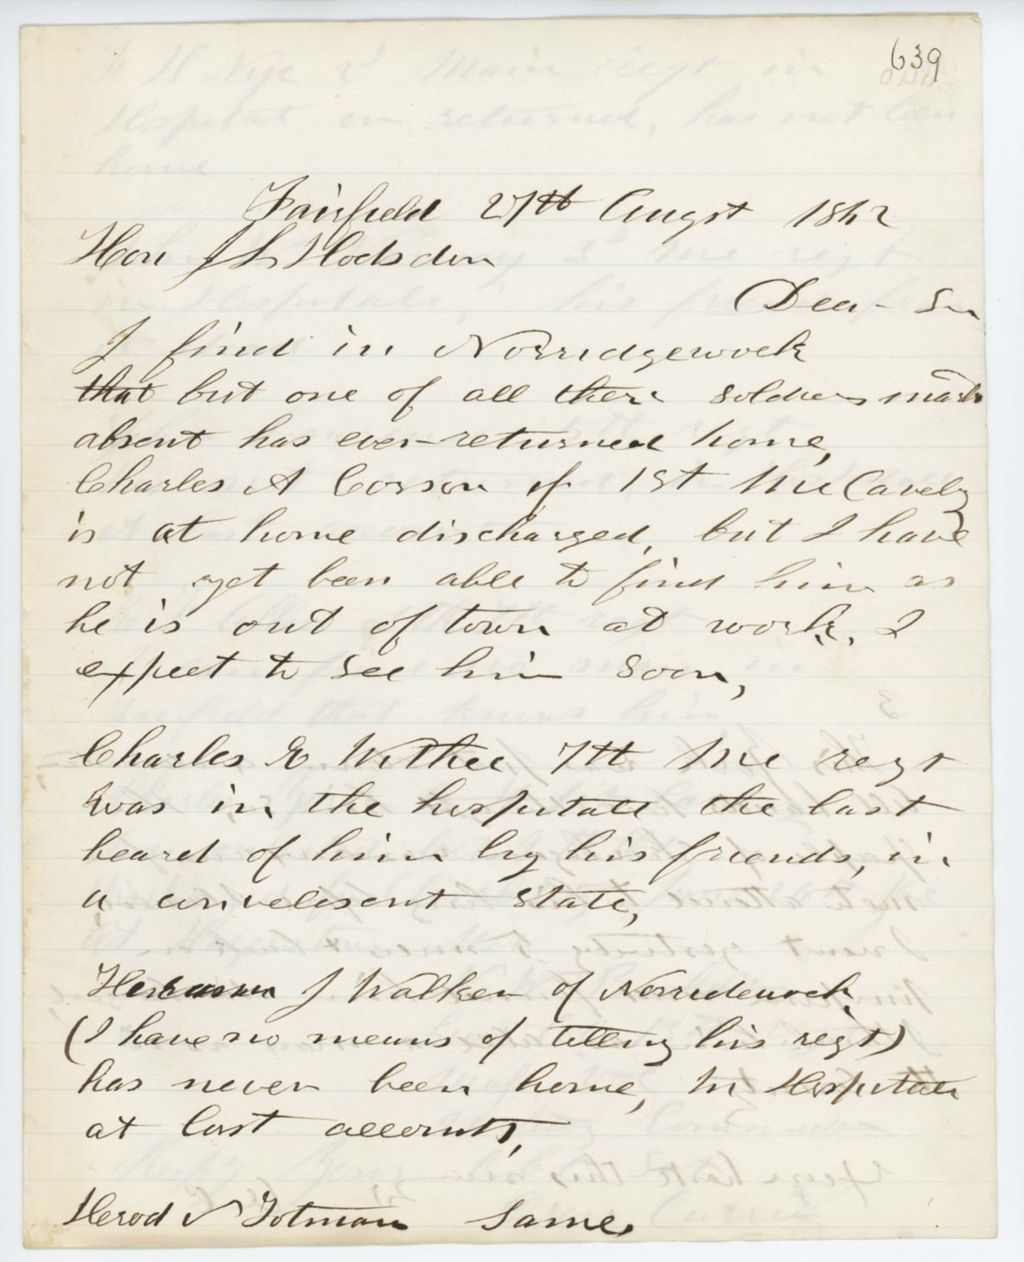 639
Fairfield 27th Augst 1862
Hon J L Hodsdon
Dear Sir
I find in Norridgewock
that but one of all their soldiers mark
absent has ever returned home,
Charles A Corson of 1st Me Cavelry
is at home discharged, but I have
not yet been able to find him as
he is out of town at work. I
expect to see him soon,
Charles E Withee 7th Me regt
was in the hospitall the last
heard of him by his friends, in
a convelesent state,
J Walker of Norridewock
(I have no means of telling his regt)
has never been home, In Hospitall
at last accounts,
Herod N Totman Same.